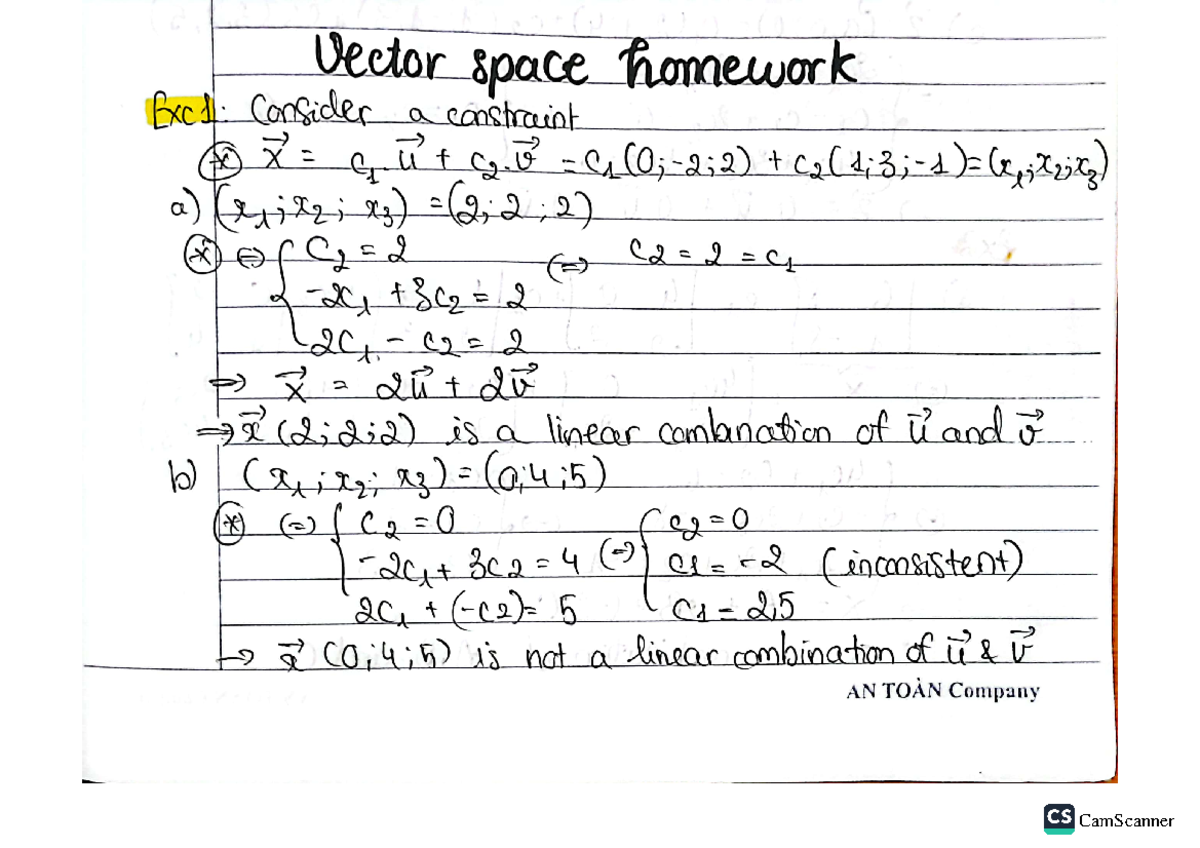 Vector space homework
Exc1: Consider a constraint
(*) x⃗ = c₁.u⃗ + c₂.v⃗ = c₁(0;-2;2) + c₂(1;3;-1)=(x₁;x₂;x₃)
a) (x₁;x₂; x₃) =(2;2;2)
(*) ⇔ { C₂ = 2 ⇔ C₂ = 2 = c₁
-2c₁ + 3c₂ = 2
2c₁ - c₂ = 2
⇒ x⃗ = 2u⃗ + 2v⃗
⇒ x⃗ (2;2;2) is a linear combination of u⃗ and v⃗
b) (x₁;x₂; x₃) = (0;4;5)
(*) ⇔ { c₂ = 0 { c₂ = 0
-2c₁ + 3c₂ = 4 ⇔ c₁ = -2 (inconsistent)
2c₁ + (-c₂) = 5 c₁ = 2,5
→ x⃗ (0;4;5) is not a linear combination of u⃗ & v⃗
AN TOÀN Company
CS CamScanner